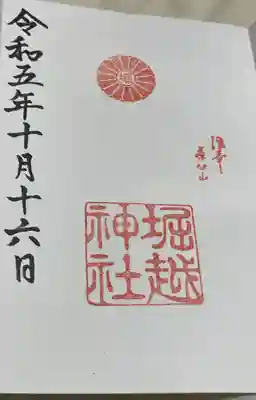 堀越
神社
令和五年十月十六日